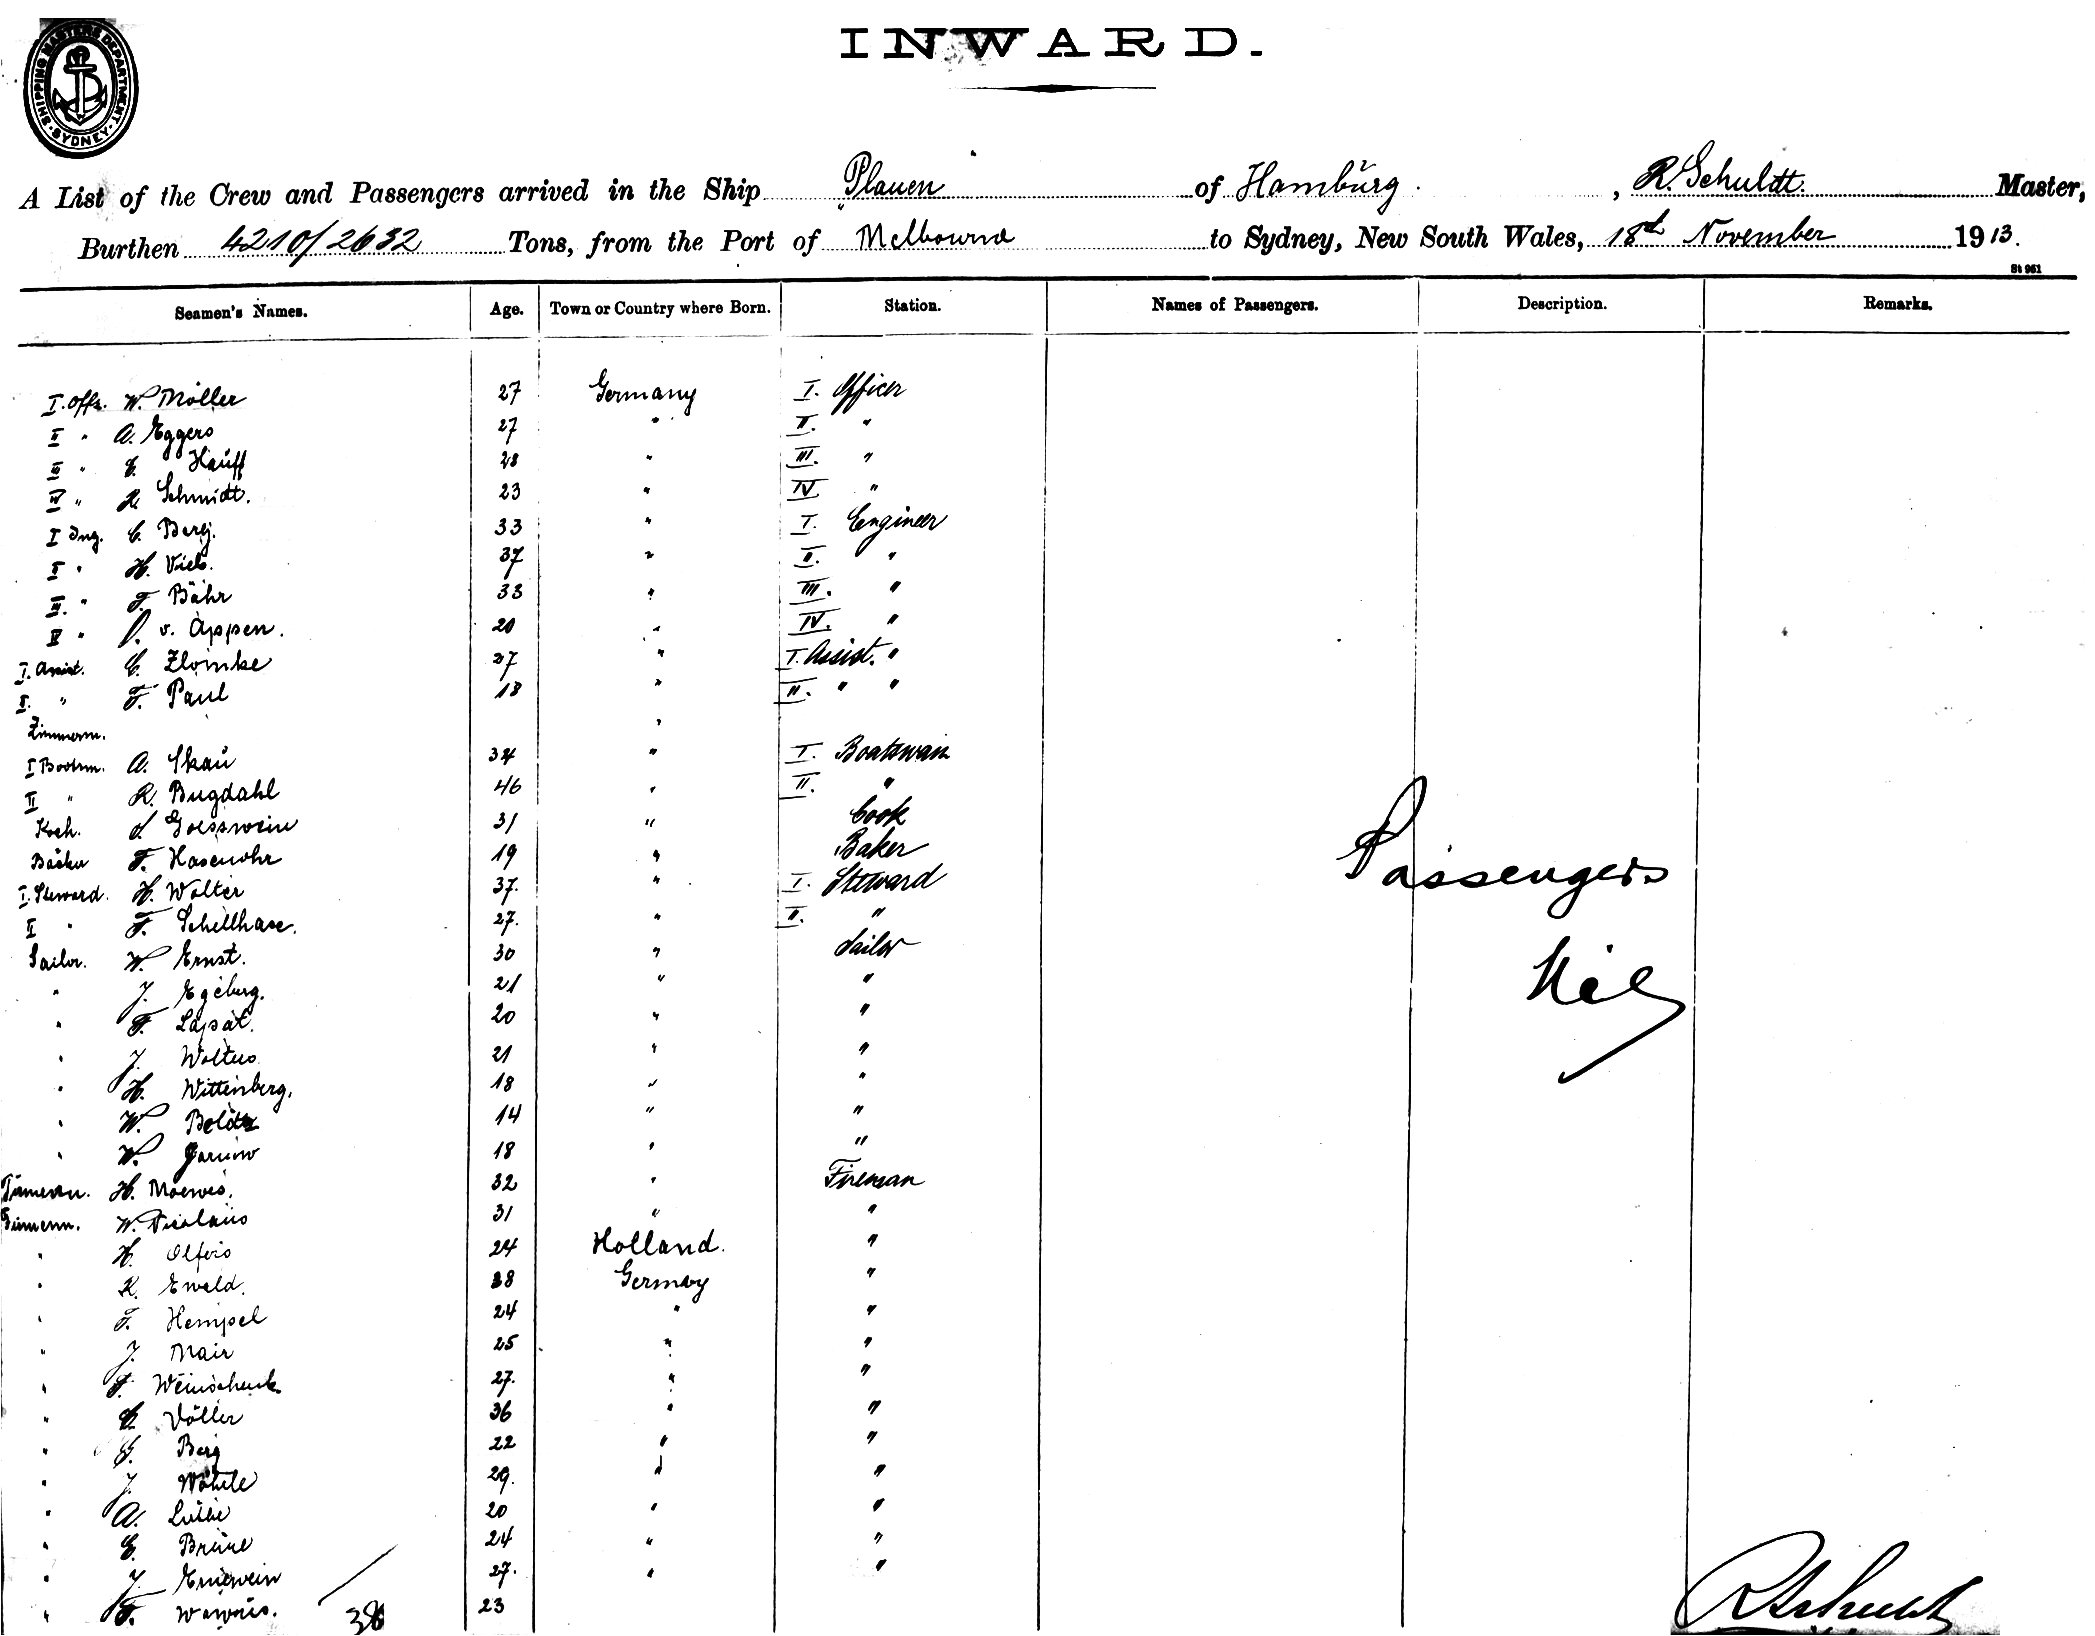 SHIPPING MASTERS DEPARTMENT · SYDNEY ·
INWARD.
A List of the Crew and Passengers arrived in the Ship Plauen of Hamburg. , R. Schuldt. Master,
Burthen 4210/2632 Tons, from the Port of Melbourne to Sydney, New South Wales, 18th November 1913.
St 961
Seamen's Names. Age. Town or Country where Born. Station. Names of Passengers. Description. Remarks.
I. Offz. W. Möller 27 Germany I. Officer
II " A. Eggers 27 " II. "
III " E. Hauff 28 " III. "
IV " R. Schmidt. 23 " IV. "
I Ing. C. Berg. 33 " I. Engineer
II " H. 37 " II. "
III. " F. Bähr 33 " III. "
IV " v. Appen. 20 " IV. "
I. Assist. E. Zlomke 27 " I. Assist. "
II. " F. Paul 18 " II. " "
Zimmerm. "
I Bootsm. A. Skau 34 " I. Boatswain
II " R. Bugdahl 46 " II. "
Koch. J. Goesswein 31 " Cook
Bäcker F. Hasenohr 19 " Baker
I. Steward. H. Wolter 37. " I. Steward
II " F. Schellhase. 27. " II. "
Sailor. W. Ernst. 30 " Sailor
" J. Egeberg. 21 " "
" F. Lapsat. 20 " "
" J. Wolters 21 " "
" H. Wittenberg. 18 " "
" W. 14 " "
" W. 18 " "
H. Moewes. 32 " Fireman
W. Nicolaus 31 " "
" H. Olfers 24 Holland. "
" R. Ewald. 28 Germay "
" F. Hempel 24 " "
" J. Mair 25 " "
" F. Weinschenk 27. " "
" E. Völler 36 " "
" Berg 22 " "
" J. 29. " "
" A. Lübbe 20 " "
" E. Brüne 24 " "
" J. 27. " "
" F. 23
38
Passengers
Nil
R Schuldt